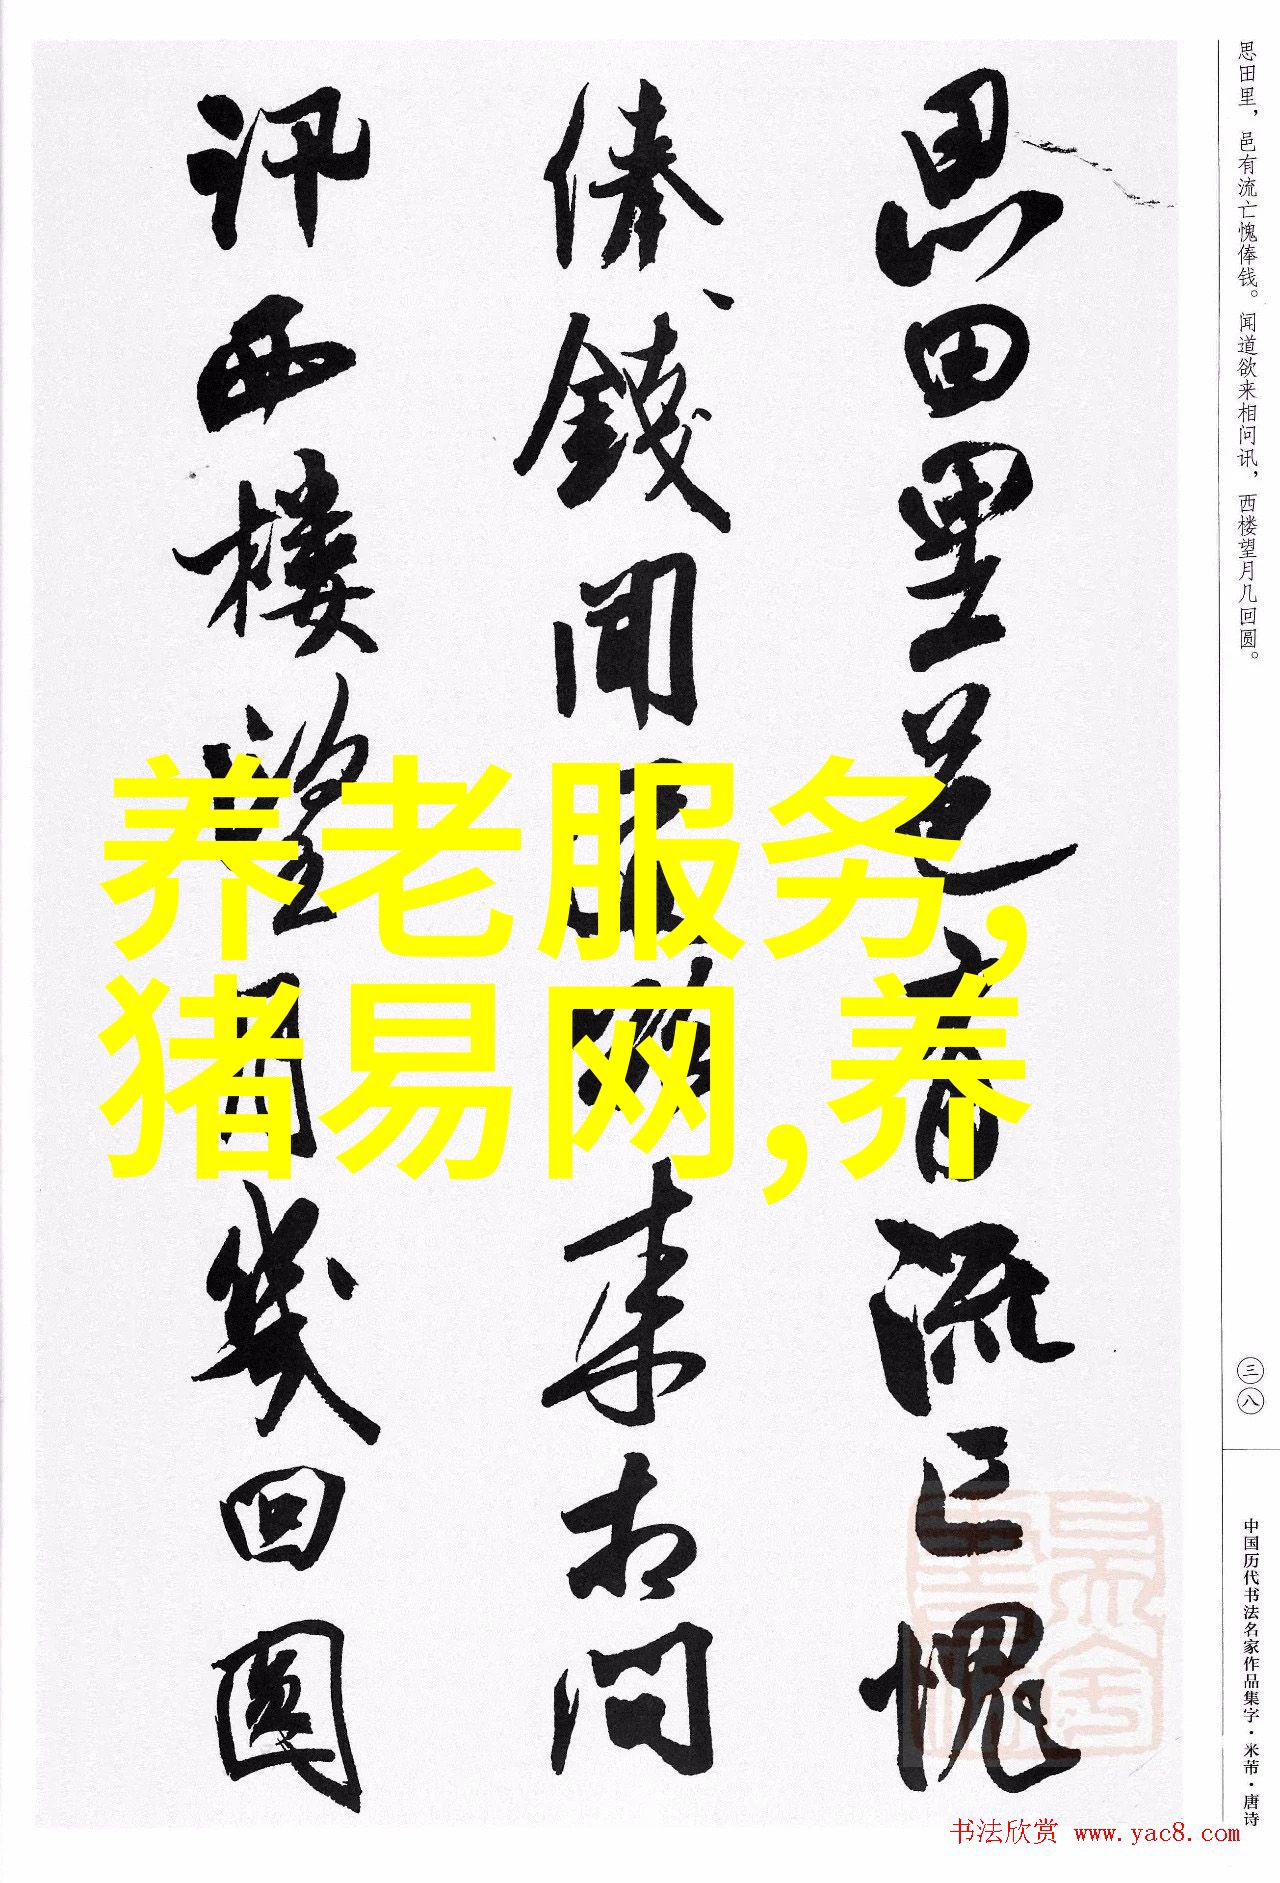 思田里邑有流亡愧
俸錢聞道欲来相問
訊西樓望月幾回圓
养老服务,
猪易网,养
思田里，邑有流亡愧俸钱。闻道欲来相问讯，西楼望月几回圆。
三八
中国历代书法名家作品集字·米芾·唐诗
书法欣赏 www.yac8.com